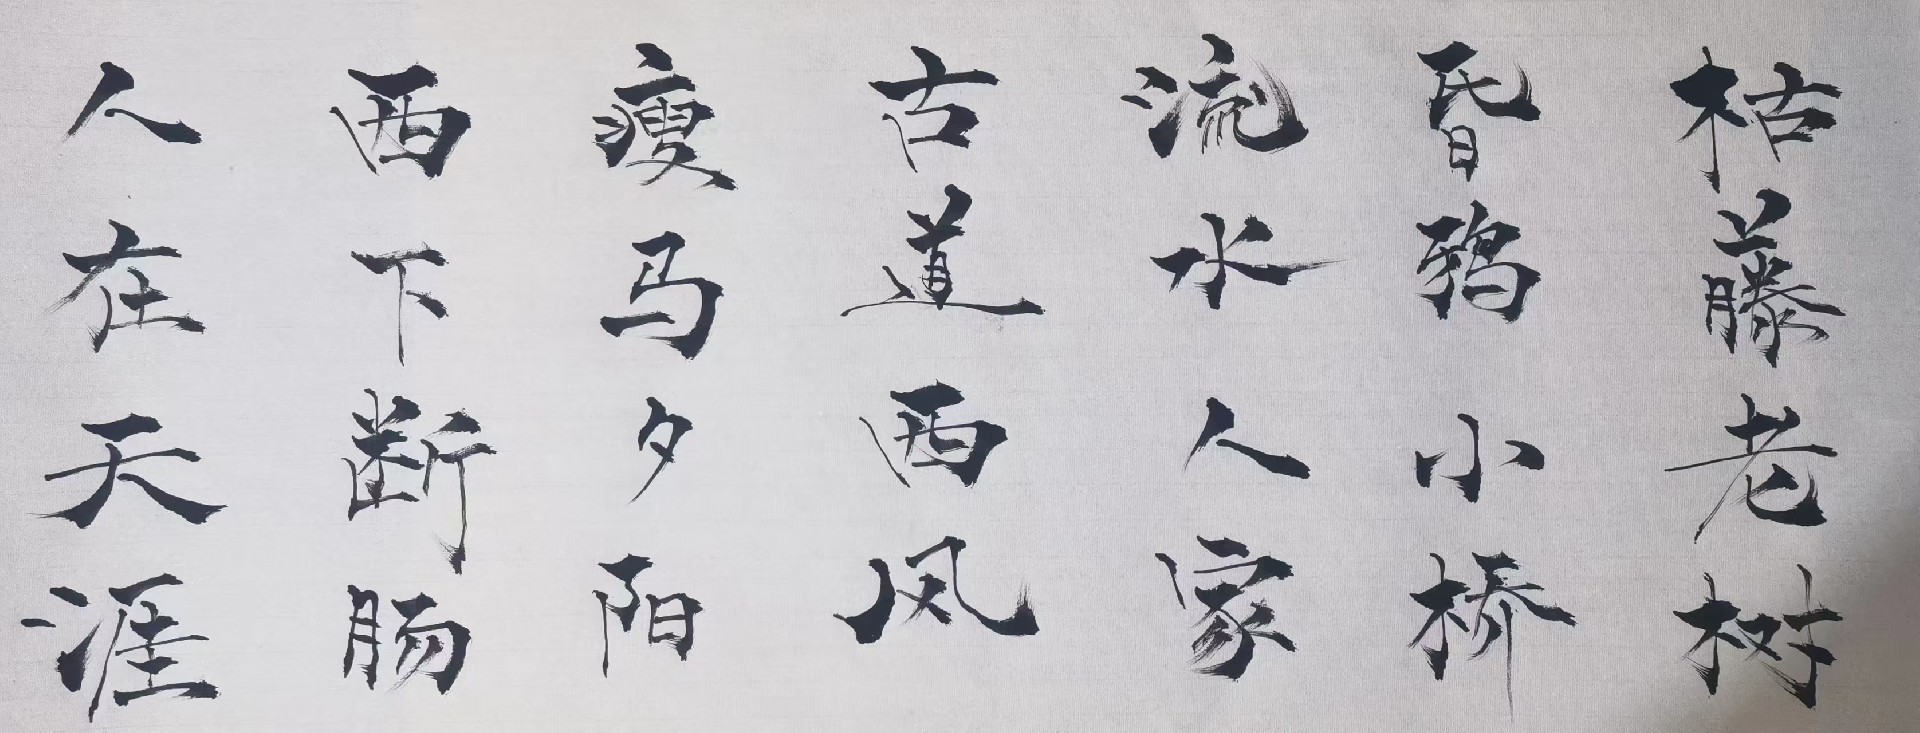 枯藤老树
昏鸦小桥
流水人家
古道西风
瘦马夕阳
西下断肠
人在天涯